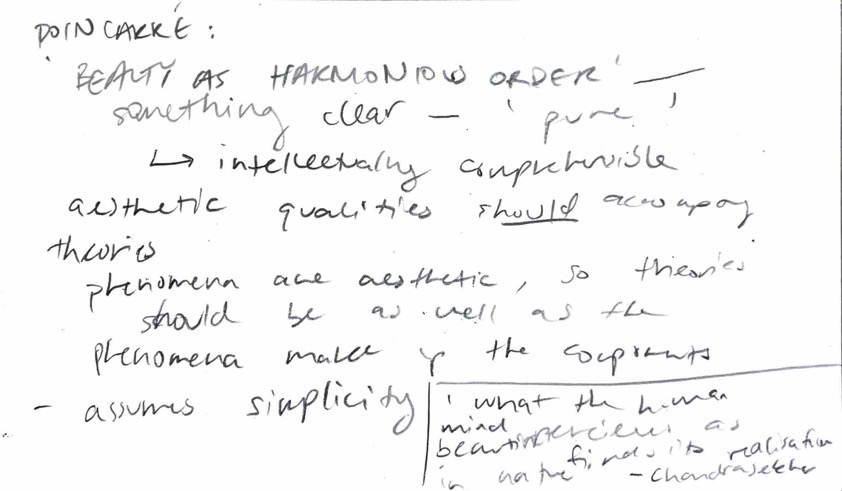 POINCARRÉ :
'BEAUTY AS HARMONIOUS ORDER' —
something clear — 'pure'
↳ intellectually comprehensible
aesthetic qualities should accompany
theories
phenomena are aesthetic, so theories
should be as well as the
phenomena make up the
- assumes simplicity
'what the human
mind perceives as
beautiful finds its realisation
in nature - Chandrasekhar